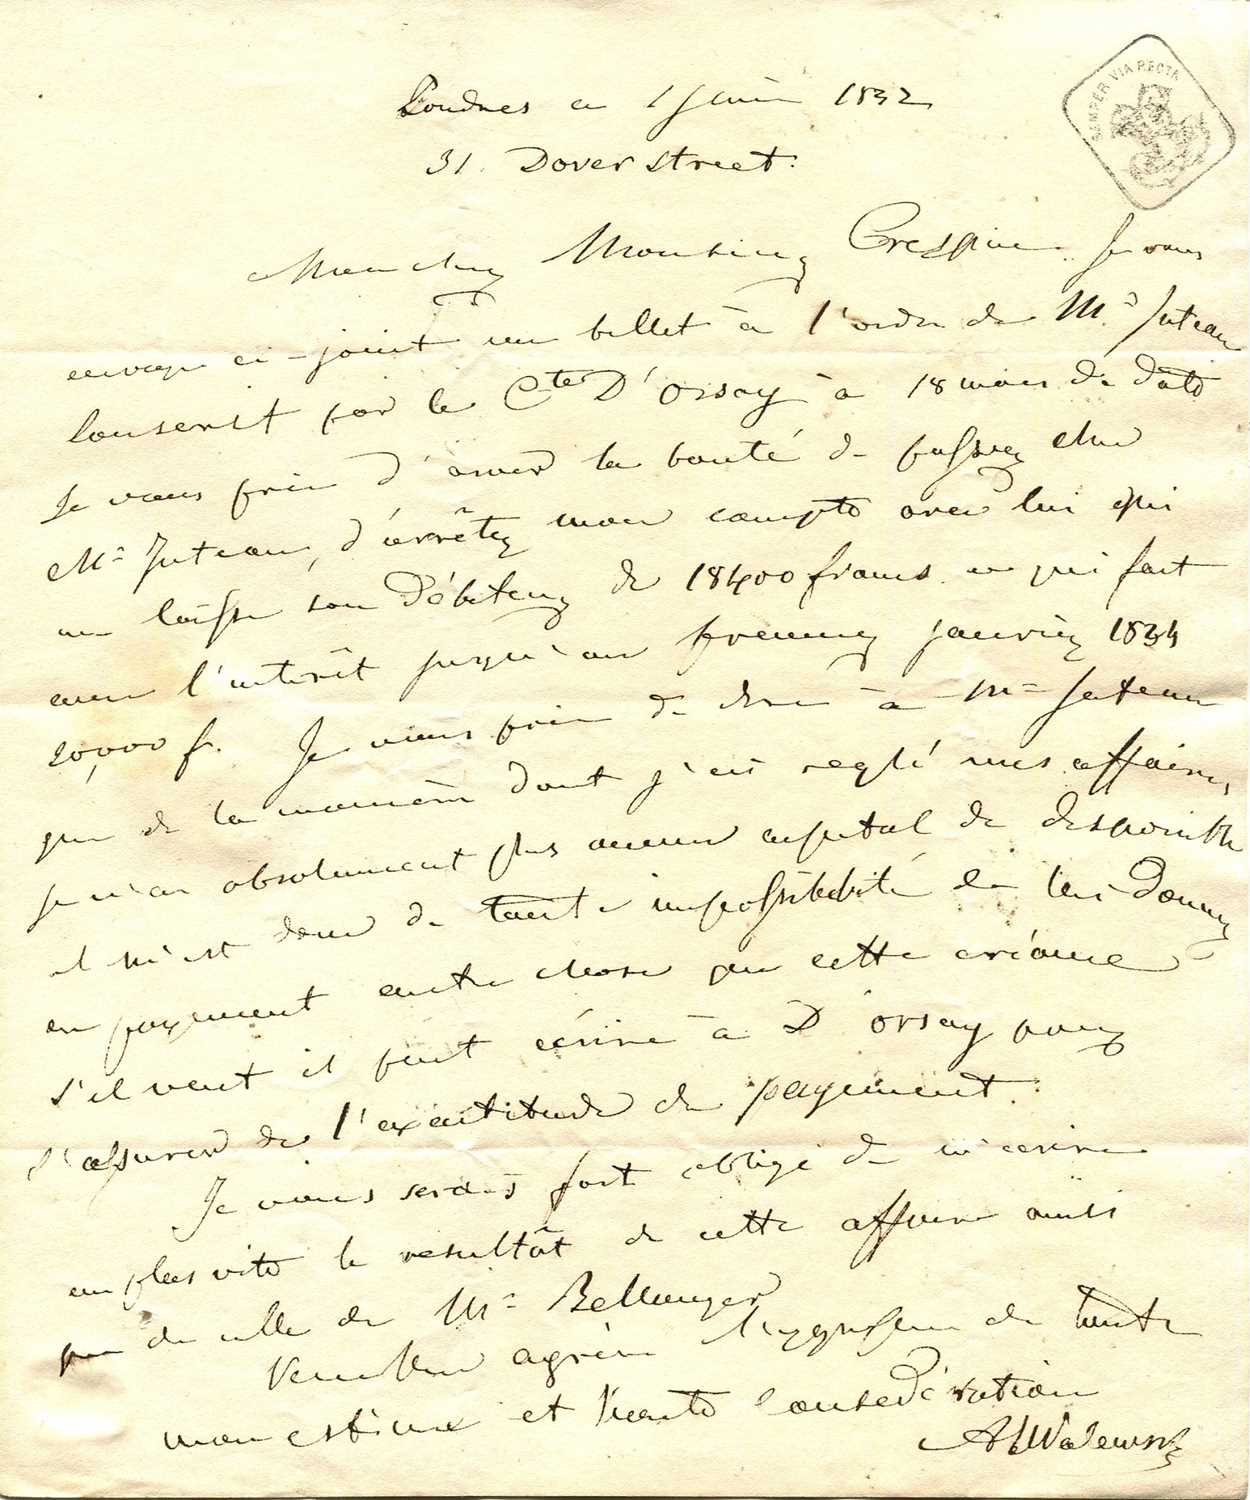 SEMPER VIA RECTA
Londres ce 1 juin 1832
31. Dover street.
Mon cher Monsieur Crespin. Je vous
envoye ci-joint un billet à l'ordre de Mr Juteau
souscrit par le Cte D'Orsay à 18 mois de date
Je vous prie d'avoir la bonté de passer chez
Mr Juteau, d'arrêter mon compte avec lui qui
me laisse son débiteur de 18400 francs ce qui fait
avec l'interêt jusqu'au premier janvier 1834
20,000 f. Je vous prie de dire à Mr Juteau
que de la manière dont j'ai reglé mes affaires,
je n'ai absolument plus aucun capital de disponible
il m'est donc de toute impossibilité de lui donner
en payement autre chose que cette créance
s'il veut il peut écrire à D'Orsay pour
s'assurer de l'exactitude du payement.
Je vous serais fort obligé de m'ecrire
au plus vite le resultât de cette affaire ainsi
que de celle de Mr Bellanger
Veuillez agréer l'expression de toute
mon estime et haute consedération
A Walewski